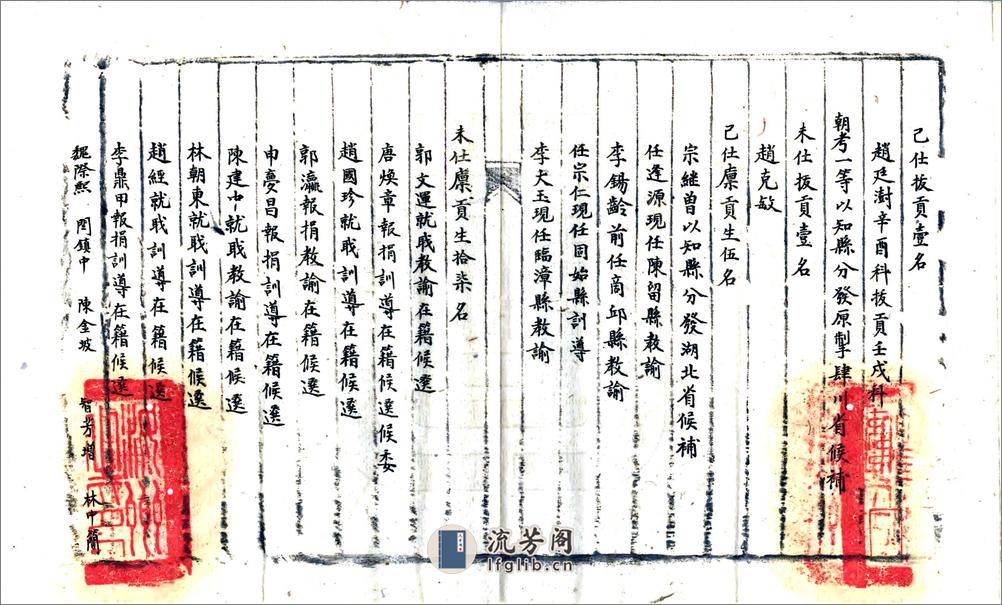 已仕拔貢壹名
趙廷澍辛酉科拔貢壬戌科
朝考一等以知縣分發原掣肆川省候補
未仕拔貢壹名
趙克敏
已仕廩貢生伍名
宗繼曾以知縣分發湖北省候補
任逢源現任陳留縣教諭
李錫齡前任商邱縣教諭
任宗仁現任固始縣訓導
李大玉現任臨漳縣教諭
未仕廩貢生拾柒名
郭文運就職教諭在籍候選
唐煥章報捐訓導在籍候選候委
趙國珍就職訓導在籍候選
郭瀛報捐教諭在籍候選
申憂昌報捐訓導在籍候選
陳建中就職教諭在籍候選
林朝東就職訓導在籍候選
趙經就職訓導在籍候選
李鼎甲報捐訓導在籍候選
際熙 閆鎮中 陳金坡 智芳增 林中簡
流芳阁
lfglib.cn